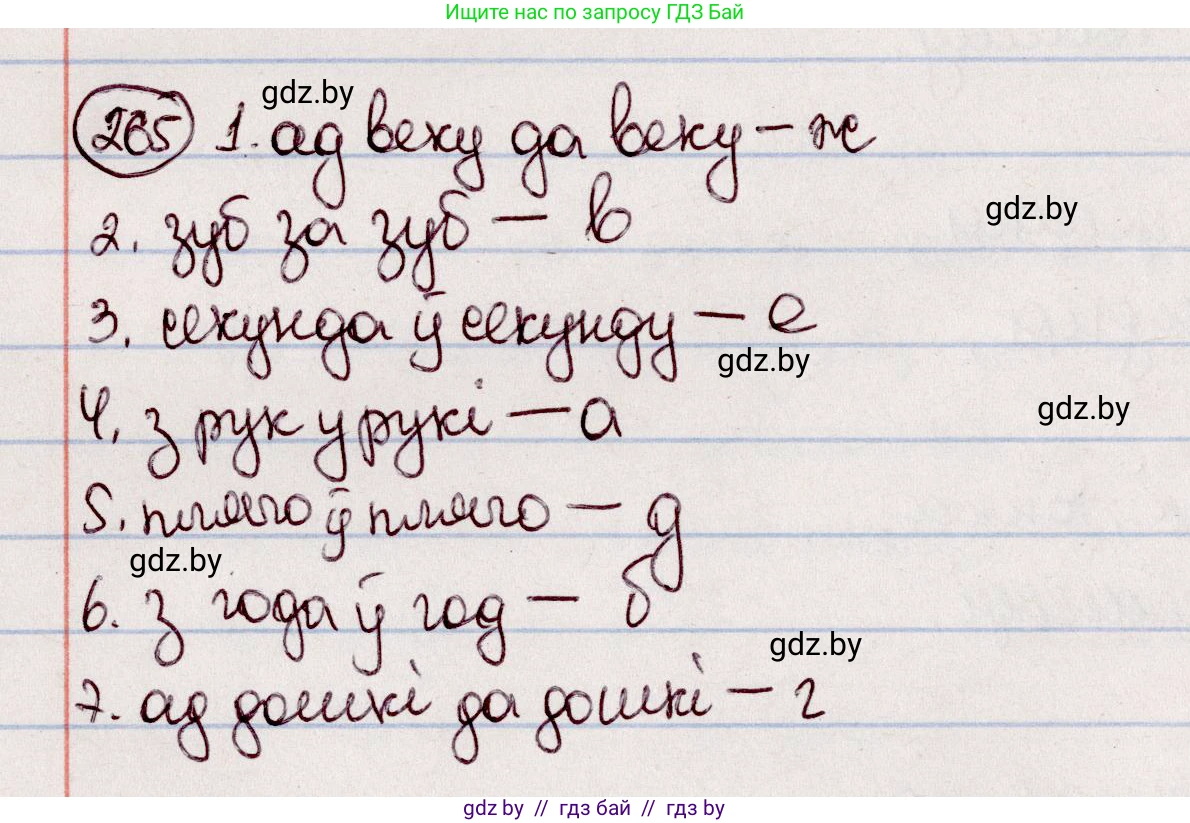 Ищите нас по запросу ГДЗ Бай
gdz.by
265 1. ад веку да веку – ж
gdz.by
2. зуб за зуб – в
3. секунда ў секунду – е
gdz.by
gdz.by
4. з рук у рукі – а
5. плячо ў плячо – д
gdz.by
6. з года ў год – б
gdz.by
7. ад дошкі да дошкі – г
gdz.by // гдз бай // гдз by